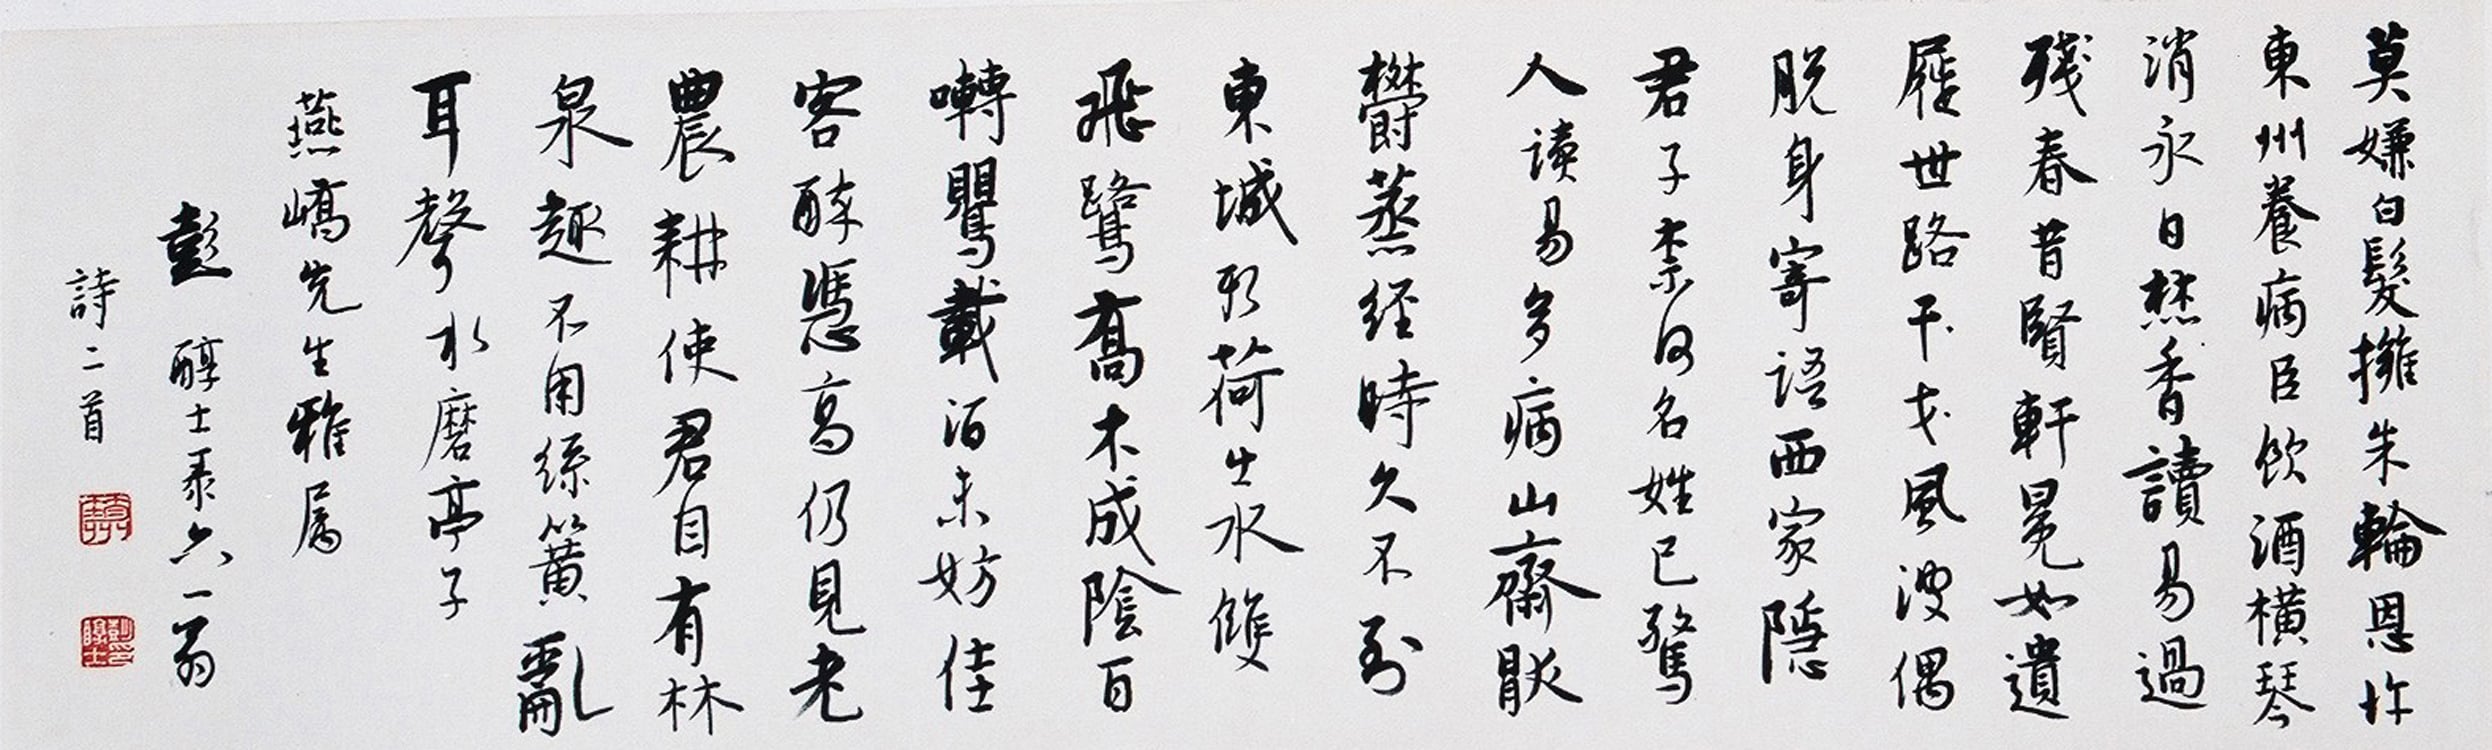 莫嫌白髮擁朱輪恩许
東州養病臣飲酒橫琴
消永日焚香讀易過
殘春昔賢軒冕如遺
屣世路干戈風波偶
脫身寄語西家隱
君子柰何名姓已驚
人讀易多病山齋厭
欝蒸经時久不到
東城新荷出水雙
飛鷺喬木成陰百
囀鸎載酒未妨佳
客醉憑高仍見老
農耕使君自有林
泉趣不用絲簧亂
耳聲水磨亭子
燕嶠先生雅属
彭醇士录六一翁
詩二首
彭印醇士